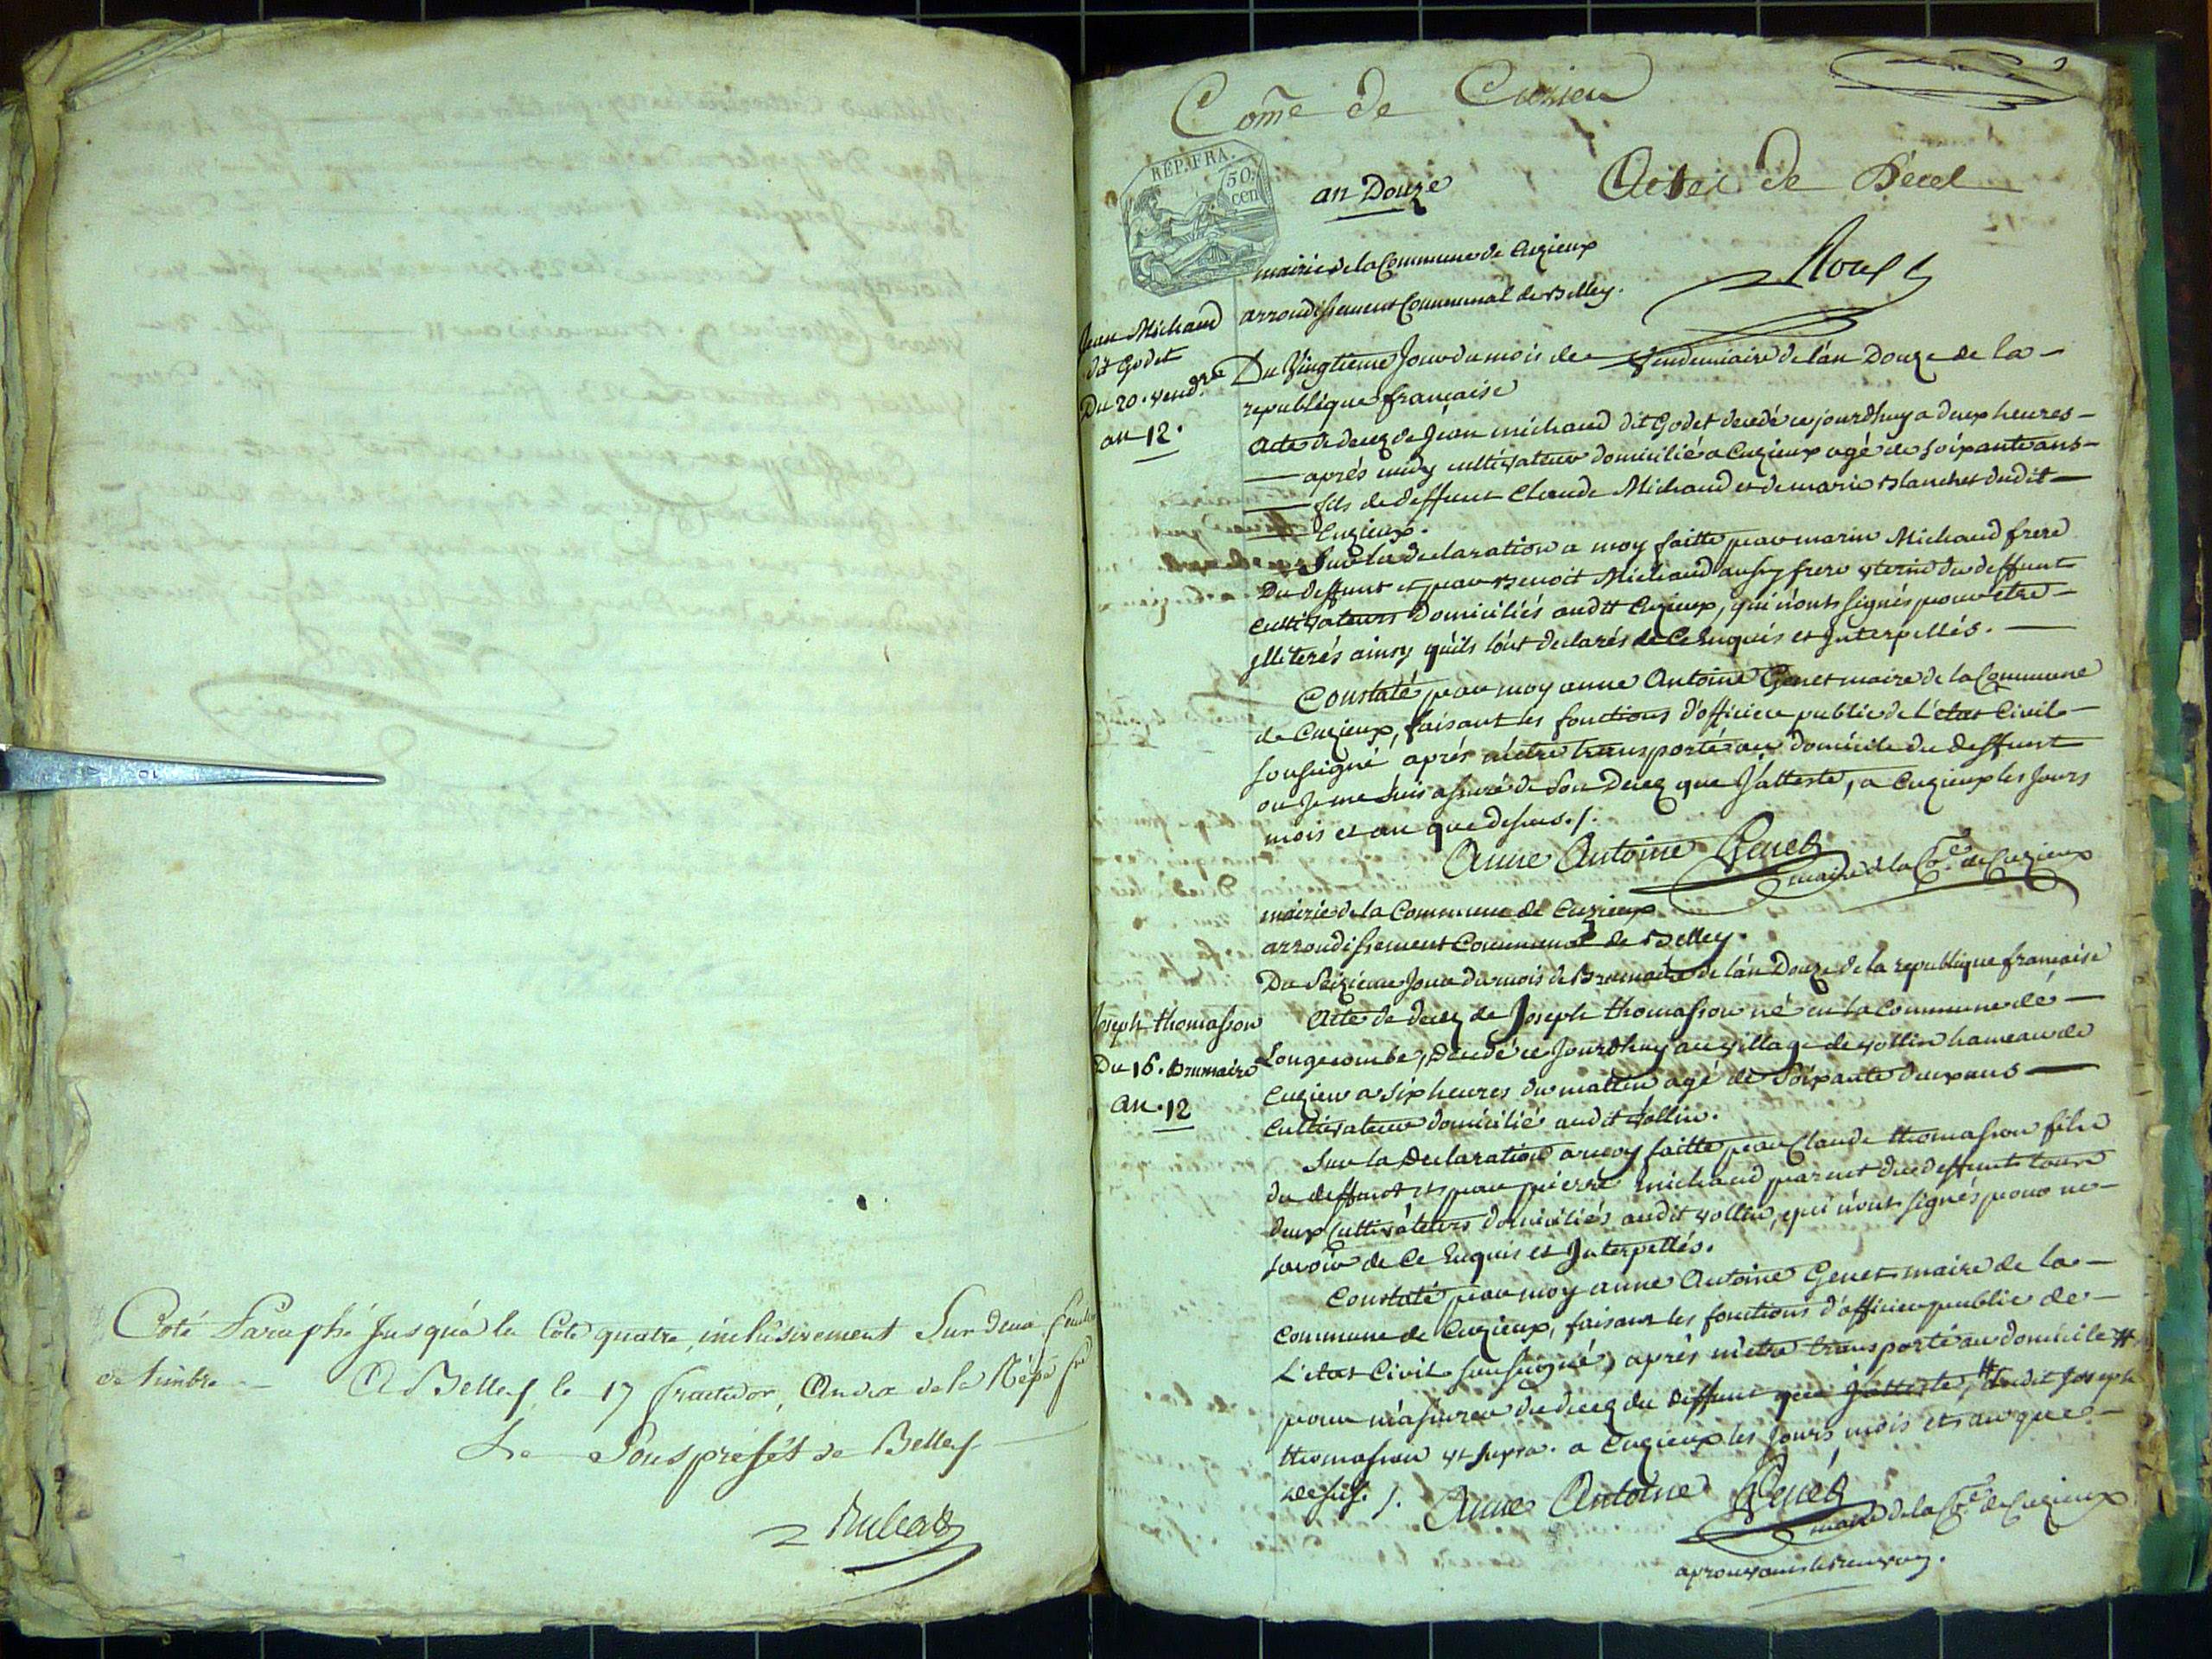 Coté Paraphé jusqu'à la Cote quatre, inclusivement Sur deux feuilles
de timbre - A Belley le 17 fructidor, An dix de la Rép. fse
Le Sous préfét de Belley
Come de Cuzieu
RÉP. FRA.
50 cen
an Douze
Actes de Décel
Roux
mairie de la Commune de Cuzieux
arrondissement Communal de Belley.
Jean Michaud
dit Godet
Du 20. vend.re
an 12.
Du Vingtieme Jour du mois de Vendemiaire de l'an Douze de la
republique française
Acte de decez de Jean michaud dit Godet decedé ce jourdhuy a deux heures
après midy cultivateur domicilié a Cuzieux agé de soixante ans
fils de deffunt Claude Michaud et de marie Blanchet dudit
Cuzieux.
Sur la declaration a moy faitte par marin Michaud frere
Du deffunt et par Benoit Michaud aussy frere uterin du deffunt
cultivateurs domiciliés audit Cuzieux, qui n'ont signés pour etre
illiterés ainsy qu'ils l'ont declarés de Ce Enquis et Interpellés.
Constaté par moy anne Antoine Genet maire de la Commune
de Cuzieux, faisant les fonctions d'officier public de L'etat Civil
soussigné après m'etre transporté au domicile du deffunt
ou Je me suis assuré de Son Decez que J'atteste, a Cuzieux les Jours
mois et an que dessus./.
Anne Antoine Genet
maire de la C.ne de Cuzieux
mairie de la Commune de Cuzieux
arrondissement Communal de Belley.
Du Seizieme Jour du mois de Brumaire de l'an Douze de la republique française
Joseph thomasson
Du 16. Brumaire
an. 12
Acte de decez de Joseph thomasson né en la Commune de
Longecombe, decedé ce Jourdhuy au village de vollin hameau de
Cuzieu a six heures du mattin agé de Soixante deux ans
Cultivateur domicilié audit vollin.
Sur la Declaration a moy faitte par Claude thomasson fils
du deffunt et par pierre michaud parent du deffunt tous
deux Cultivateurs domiciliés audit vollin, qui n'ont signés pour ne
savoir de Ce Enquis et Interpellés.
Constaté par moy anne Antoine Genet maire de la
Commune de Cuzieux, faisant les fonctions d'officier public de
L'etat Civil soussigné, après m'etre transporté au domicile #
pour m'assurer du decez du deffunt que J'atteste, # dudit Joseph
thomasson ut supra. a Cuzieux les Jours mois et an que
dessus. /. Anne Antoine Genet
maire de la C.ne de Cuzieux
aprouvant le renvoy.